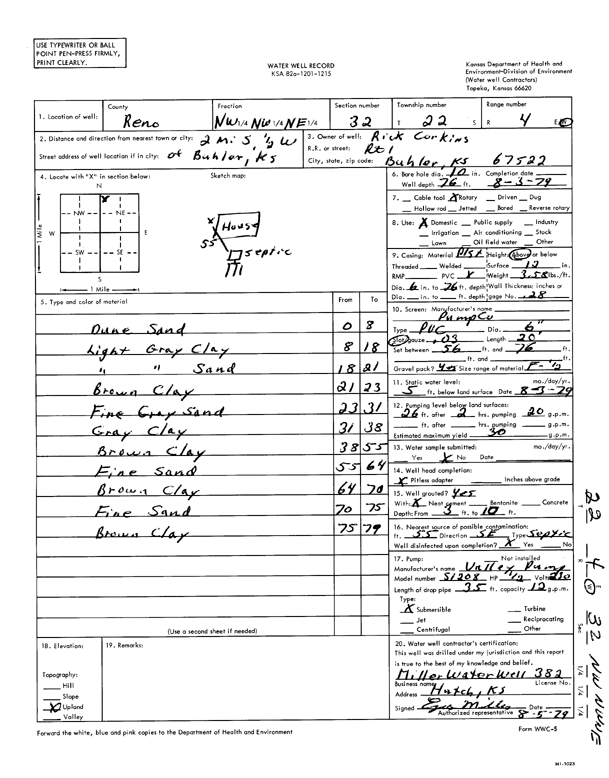 USE TYPEWRITER OR BALL
POINT PEN-PRESS FIRMLY,
PRINT CLEARLY.
WATER WELL RECORD
KSA 82a-1201-1215
Kansas Department of Health and
Environment-Division of Environment
(Water well Contractors)
Topeka, Kansas 66620
1. Location of well:
County
Reno
Fraction
NW 1/4 NW 1/4 NE 1/4
Section number
32
Township number
T 22 S
Range number
R 4 E W
2. Distance and direction from nearest town or city: 2 mi S, 1/2 W
Street address of well location if in city: of Buhler, Ks
3. Owner of well: Rick Corkins
R.R. or street: Rt 1
City, state, zip code: Buhler, KS 67522
4. Locate with "X" in section below:
N
X
NW
NE
W
E
SW
SE
S
1 Mile
1 Mile
Sketch map:
X
House
55
septic
6. Bore hole dia. 10 in. Completion date
Well depth 76 ft. 8-3-79
7. Cable tool X Rotary Driven Dug
Hollow rod Jetted Bored Reverse rotary
8. Use: X Domestic Public supply Industry
Irrigation Air conditioning Stock
Lawn Oil field water Other
9. Casing: Material Plst Height: Above or below
Threaded Welded Surface 12 in.
RMP PVC X Weight 3.58 lbs./ft.
Dia. 6 in. to 76 ft. depth Wall Thickness: inches or
Dia. in. to ft. depth gage No. .28
5. Type and color of material
From To
Dune Sand 0 8
Light Gray Clay 8 18
" " Sand 18 21
Brown Clay 21 23
Fine Gray Sand 23 31
Gray Clay 31 38
Brown Clay 38 55
Fine Sand 55 64
Brown Clay 64 70
Fine Sand 70 75
Brown Clay 75 79
(Use a second sheet if needed)
10. Screen: Manufacturer's name
PumpCo
Type PVC Dia. 6"
Slot/gauze .03 Length 20'
Set between 56 ft. and 76 ft.
ft. and ft.
Gravel pack? yes Size range of material F-1/2
11. Static water level: mo./day/yr.
5 ft. below land surface Date 8-3-79
12. Pumping level below land surfaces:
26 ft. after 2 hrs. pumping 20 g.p.m.
ft. after hrs. pumping g.p.m.
Estimated maximum yield 30 g.p.m.
13. Water sample submitted: mo./day/yr.
Yes X No Date
14. Well head completion:
X Pitless adapter Inches above grade
15. Well grouted? yes
With: X Neat cement Bentonite Concrete
Depth: From 3 ft. to 10 ft.
16. Nearest source of possible contamination:
ft. 55 Direction SE Type Septic
Well disinfected upon completion? X Yes No
17. Pump: Not installed
Manufacturer's name Valley Pump
Model number S1208 HP 1/2 Volts 230
Length of drop pipe 35 ft. capacity 12 g.p.m.
Type:
X Submersible Turbine
Jet Reciprocating
Centrifugal Other
18. Elevation:
Topography:
Hill
Slope
X Upland
Valley
19. Remarks:
20. Water well contractor's certification:
This well was drilled under my jurisdiction and this report
is true to the best of my knowledge and belief.
Miller Water Well 382
Business name License No.
Address Hutch, KS
Signed Date 8-5-79
Authorized representative
Forward the white, blue and pink copies to the Department of Health and Environment
Form WWC-5
MI-1023
T 22 R 4 E W Sec 32 1/4 1/4 1/4 NW NW NE